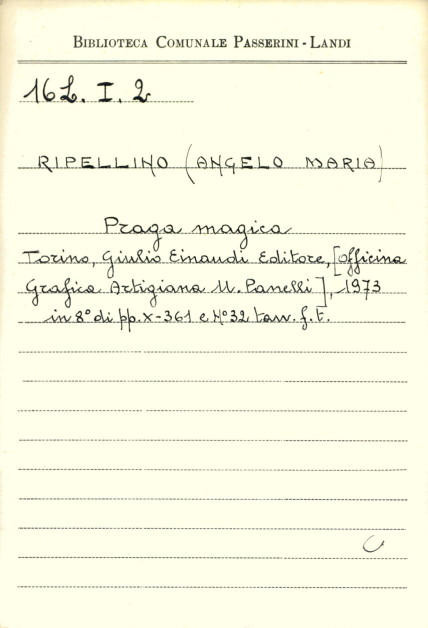 BIBLIOTECA COMUNALE PASSERINI - LANDI
16L. I. 2
RIPELLINO (ANGELO MARIA)
Praga magica
Torino, Giulio Einaudi Editore, [Officina
Grafica Artigiana U. Panelli], 1973
in 8° di pp. X-361 e N° 32 tavv. f. t.
C